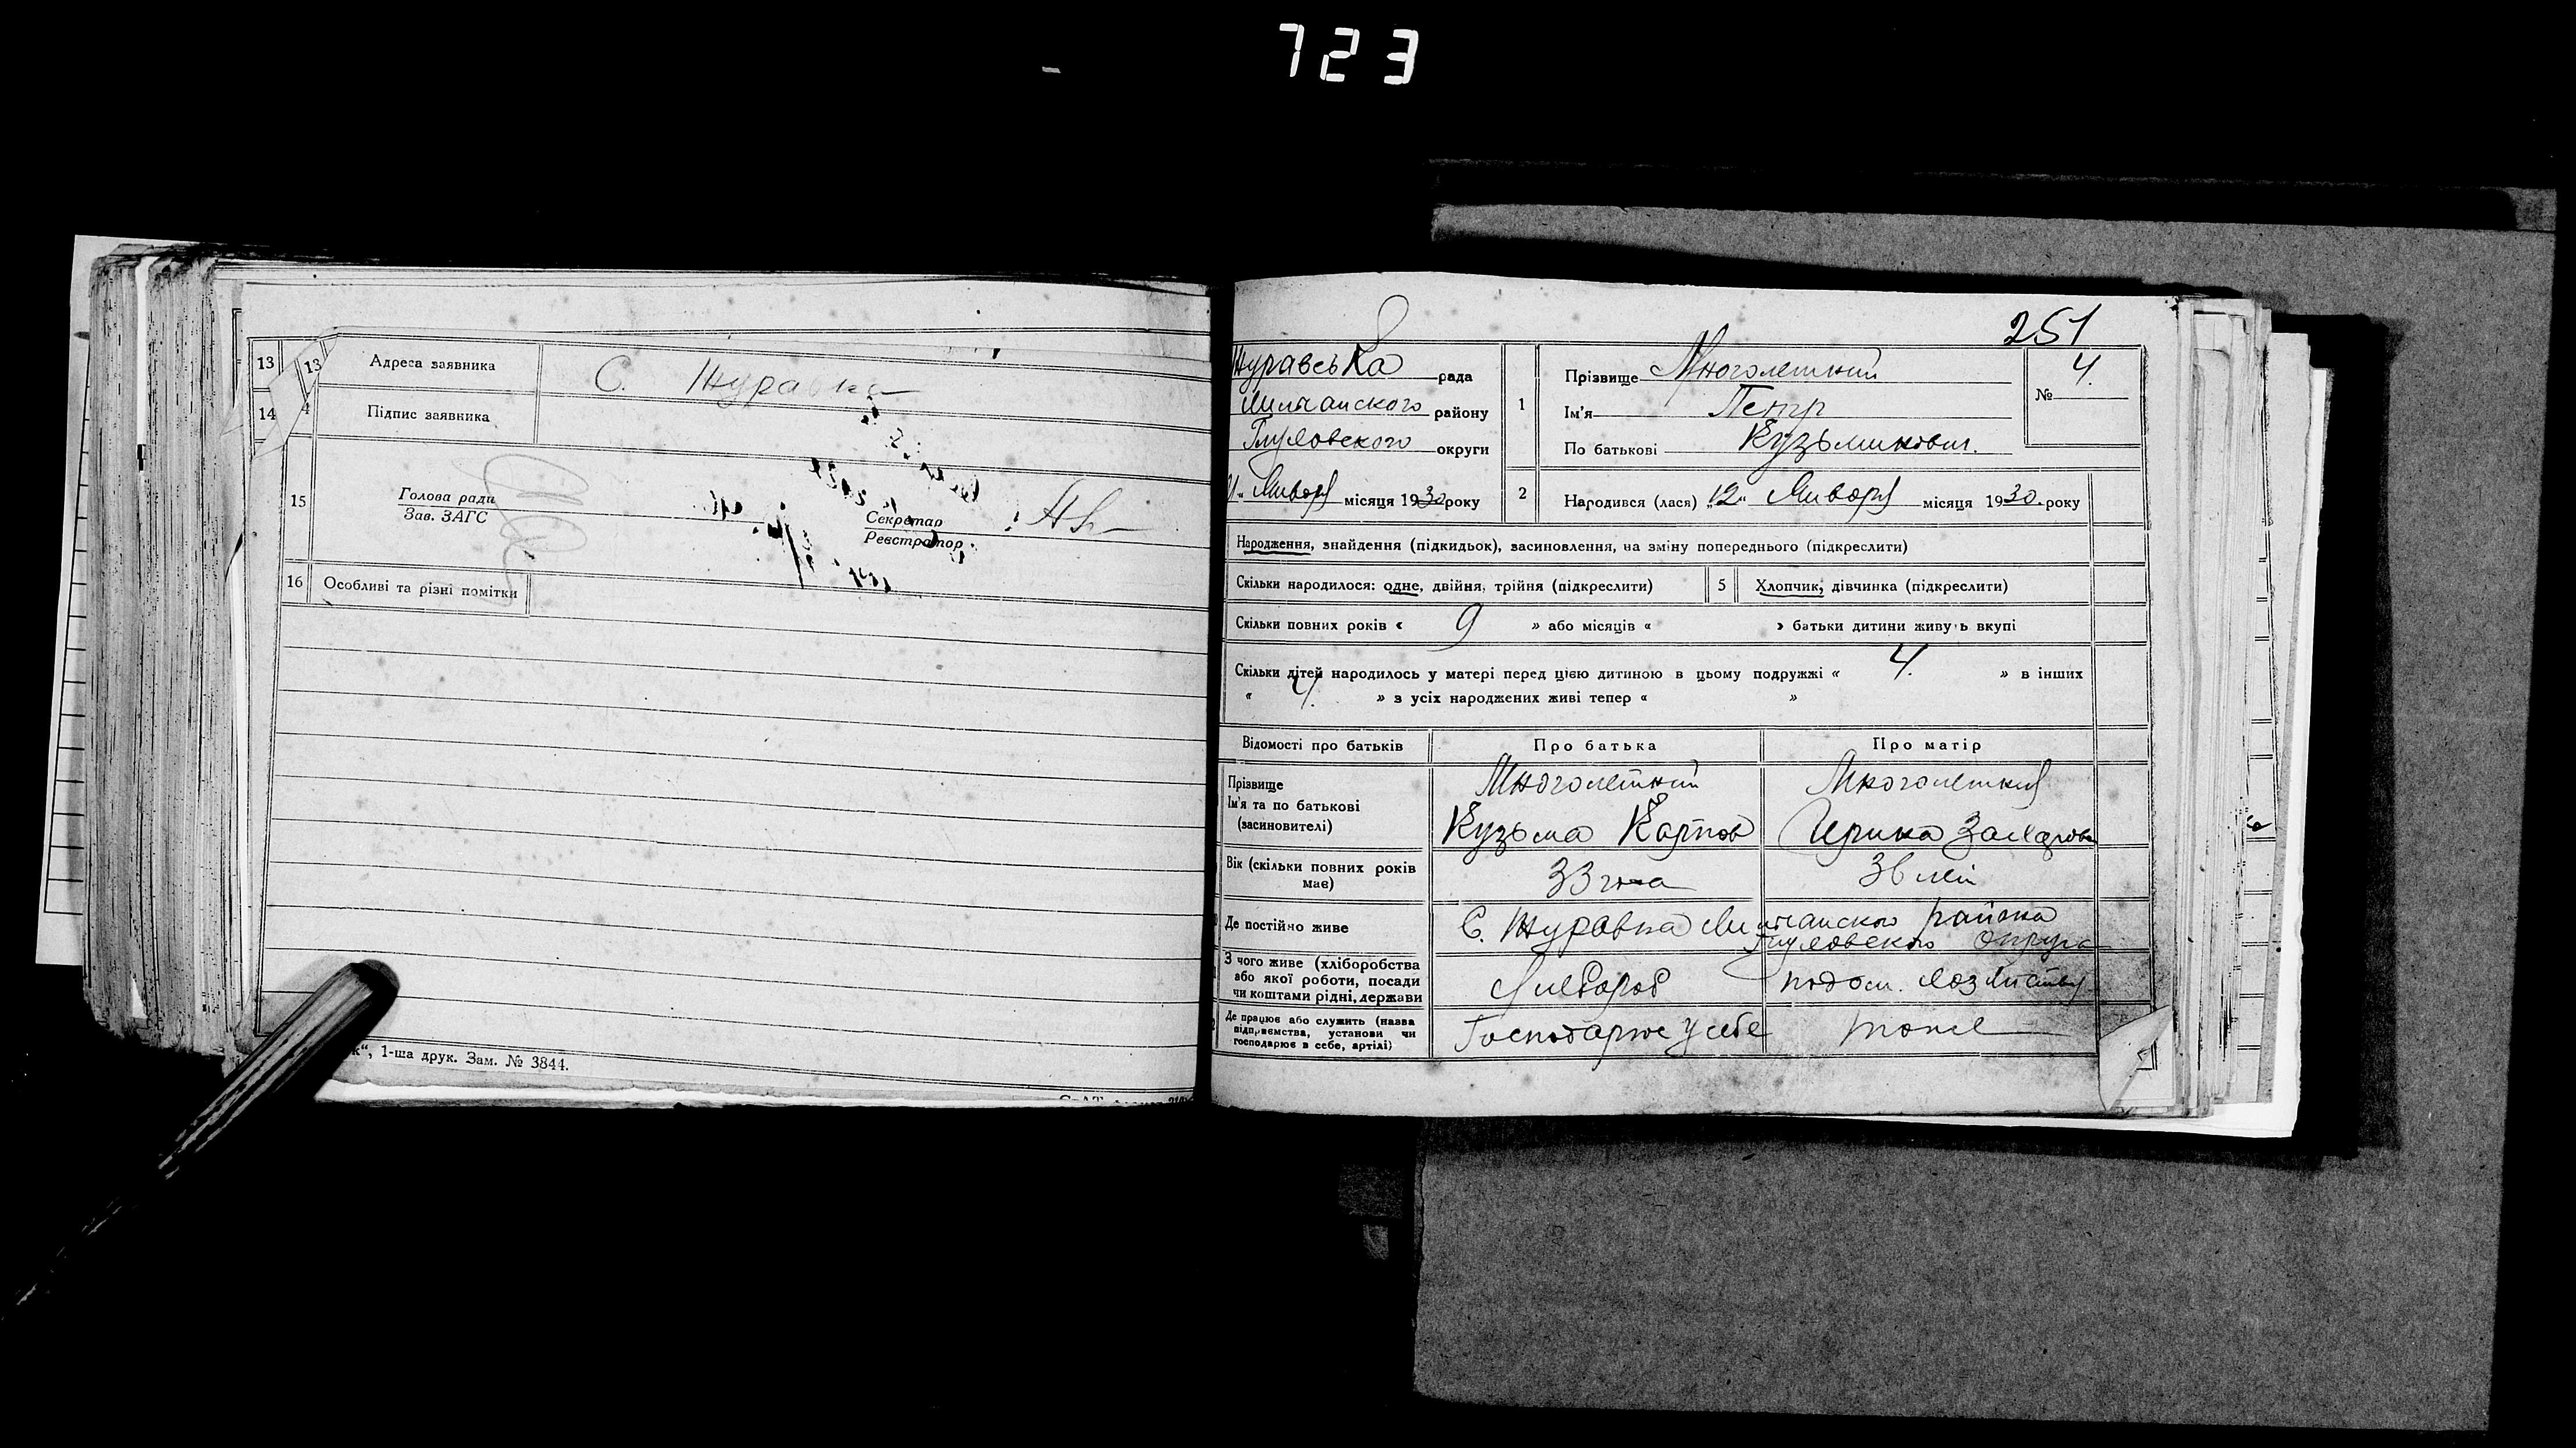 723
13 13 Адреса заявника С. Журавка
14 4 Підпис заявника
15 Голова ради
Зав. ЗАГС
Секретар
Реєстратор
16 Особливі та різні помітки
к“, 1-ша друк. Зам. № 3844.
251
Журавська рада
району
Глуховского округи
Января місяця 1930 року
1 Прізвище Многолетний
Ім'я Петр
По батькові Кузьмикович.
№ 4.
2 Народився (лася) „12“ Января місяця 1930. року
Народження, знайдення (підкидьок), засиновлення, на зміну попереднього (підкреслити)
Скільки народилося: одне, двійня, трійня (підкреслити) 5 Хлопчик, дівчинка (підкреслити)
Скільки повних років « 9 » або місяців « » батьки дитини живуь вкупі
Скільки дітей народилось у матері перед цією дитиною в цьому подружжі « 4. » в інших
« 4. » з усіх народжених живі тепер « »
Відомості про батьків Про батька Про матір
Прізвище Многолетний Многолетняя
Ім'я та по батькові
(засиновителі) Кузьма Карпов Ирина Захарова
Вік (скільки повних років
має) 33 года 36 лет
Де постійно живе С. Журавка района
Глуховского Округа
З чого живе (хліборобства
або якої роботи, посади
чи коштами рідні, держави хлебороб по дом. хозяйству
Де працює або служить (назва
підприємства, установи чи
господарює в себе, артілі) Господарює у себе тоже